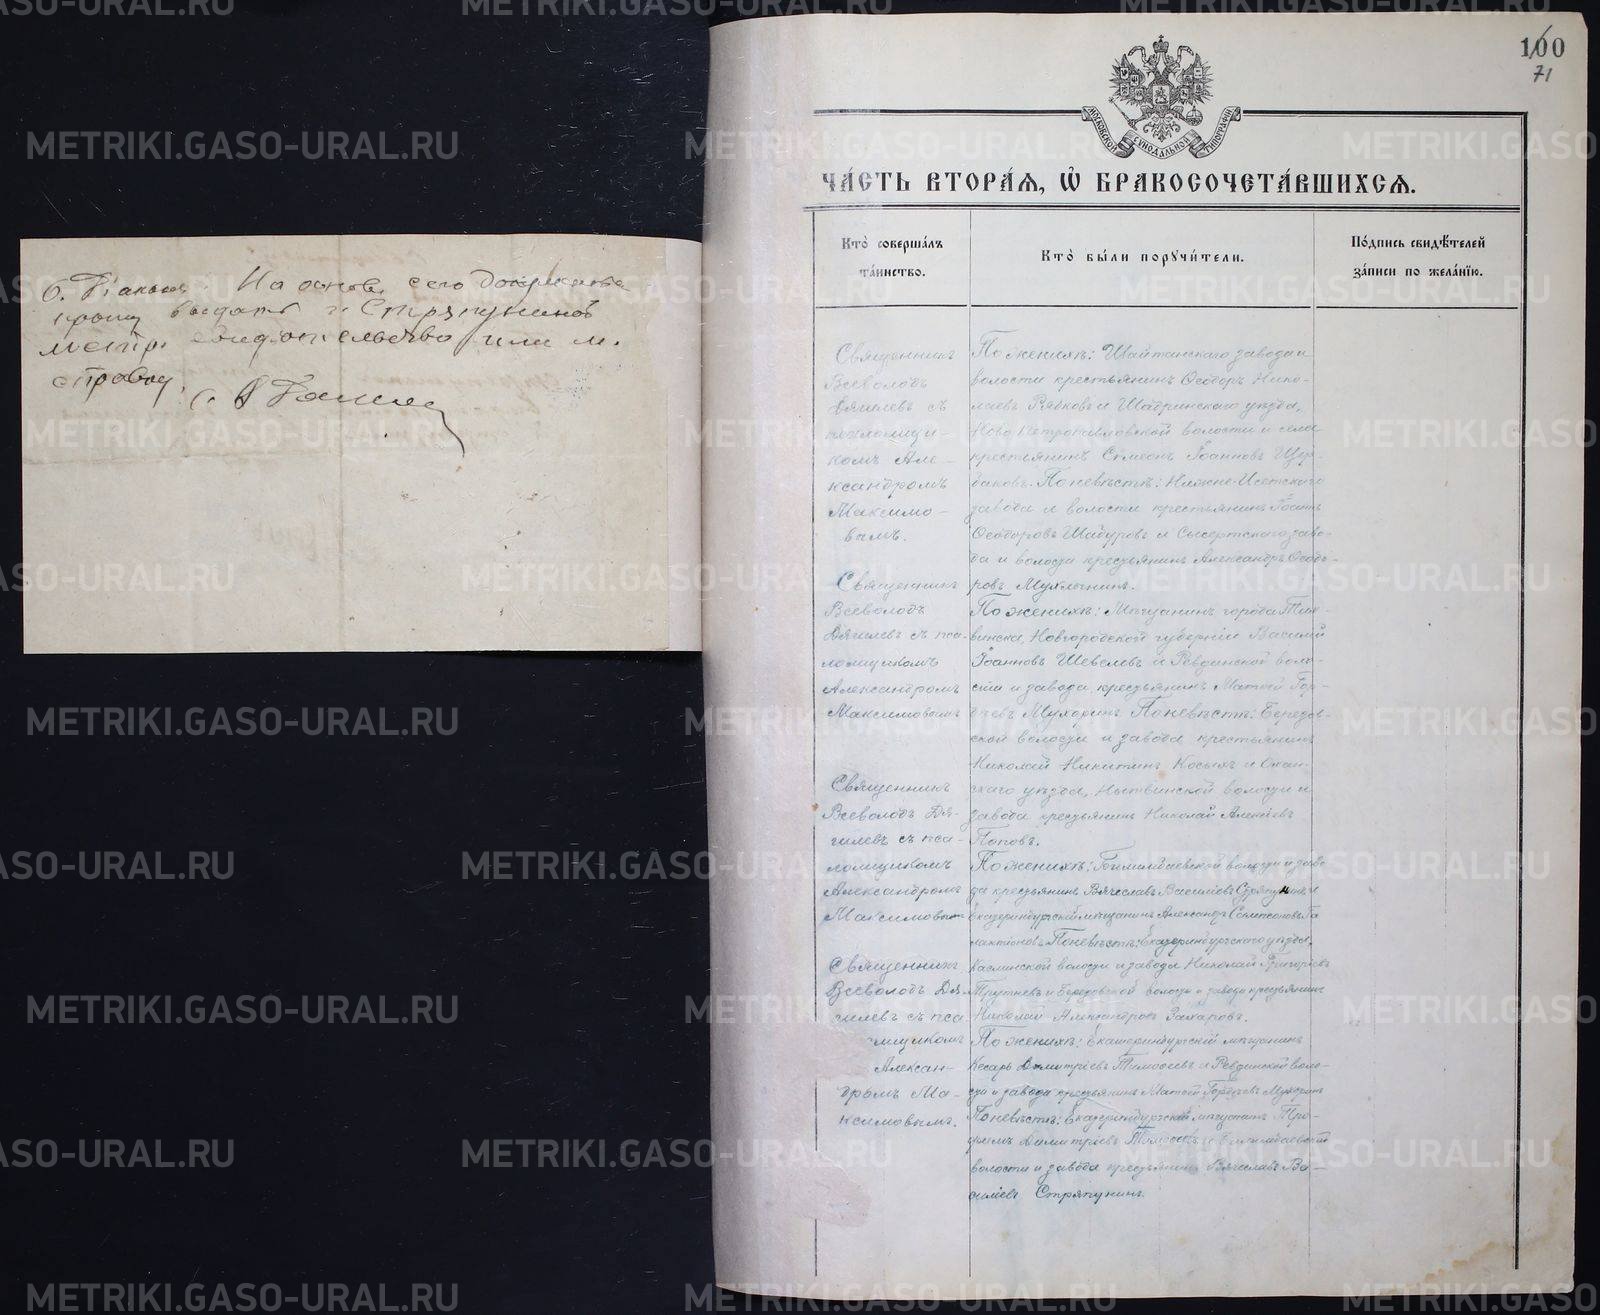 О. Диакон. На основ. сего документа
прошу выдать г. Стряпунинов
метр. свидетельство или м.
справку.
100
71
МОСКОВСКОЙ СѴНОДАЛЬНОЙ ТИПОГРАФІИ
ЧА́СТЬ ВТОРА́Ѧ, Ѡ҆ БРАКОСОЧЕТА́ВШИХСѦ.
Кто̀ соверша́лъ
та́инство.
Кто̀ бы́ли порꙋчи́тели.
По́дпись свидѣ́телей
за́писи по жела́нїю.
Священникъ
Всеволодъ
Дягилевъ съ
псаломщи-
комъ Але-
ксандромъ
Максимо-
вымъ.
По женихѣ: Шайтанскаго завода и
волости крестьянинъ Ѳеодоръ Нико-
лаевъ Рябковъ и Шадринскаго уѣзда,
Ново-Петропавловской волости и села
крестьянинъ Сѵмеонъ Іоанновъ Щер-
баковъ. По невѣстѣ: Нижне-Исетскаго
завода и волости крестьянинъ Іоаннъ
Ѳеодоровъ Шабуровъ и Сысертскаго заво-
да и волости крестьянинъ Александръ Ѳеодо-
ровъ
Священникъ
Всеволодъ
Дягилевъ съ пса-
ломщикомъ
Александромъ
Максимовымъ
По женихѣ: Мѣщанинъ города Тих-
винска, Новгородской губерніи Василій
Іоанновъ Шевелевъ и Ревдинской воло-
сти и завода крестьянинъ Матѳей Гор-
деевъ Мухоринъ. По невѣстѣ: Березов-
ской волости и завода крестьянинъ
Николай Никитинъ Косыхъ и Охан-
скаго уѣзда, Нытвинской волости и
завода крестьянинъ Николай Алексѣевъ
Поповъ.
Священникъ
Всеволодъ Дя-
гилевъ съ пса-
ломщикомъ
Александромъ
Максимовымъ
По женихѣ: Билимбаевской волости и заво-
да крестьянинъ Вячеславъ Василіевъ Стряпунинъ и
Екатеринбургскій мѣщанинъ Александръ Сампсоновъ Га-
лактіоновъ. По невѣстѣ: Екатеринбургскаго уѣзда,
Каслинской волости и завода Николай Григорьевъ
Трутневъ и Березовской волости и завода крестьянинъ
Николай Александровъ Захаровъ.
Священникъ
Всеволодъ Дя-
гилевъ съ пса
омщикомъ
Алексан-
дромъ Ма-
ксимовымъ.
По женихѣ: Екатеринбургскій мѣщанинъ
Кесарь Димитріевъ Тимофеевъ и Ревдинской воло-
сти и завода крестьянинъ Матѳей Гордеевъ Мухоринъ
По невѣстѣ: Екатеринбургскій мѣщанинъ Тро-
фимъ Димитріевъ Тимофеевъ и Билимбаевской
волости и завода крестьянинъ Вячеславъ Ва-
силіевъ Стряпунинъ.
METRIKI.GASO-URAL.RU